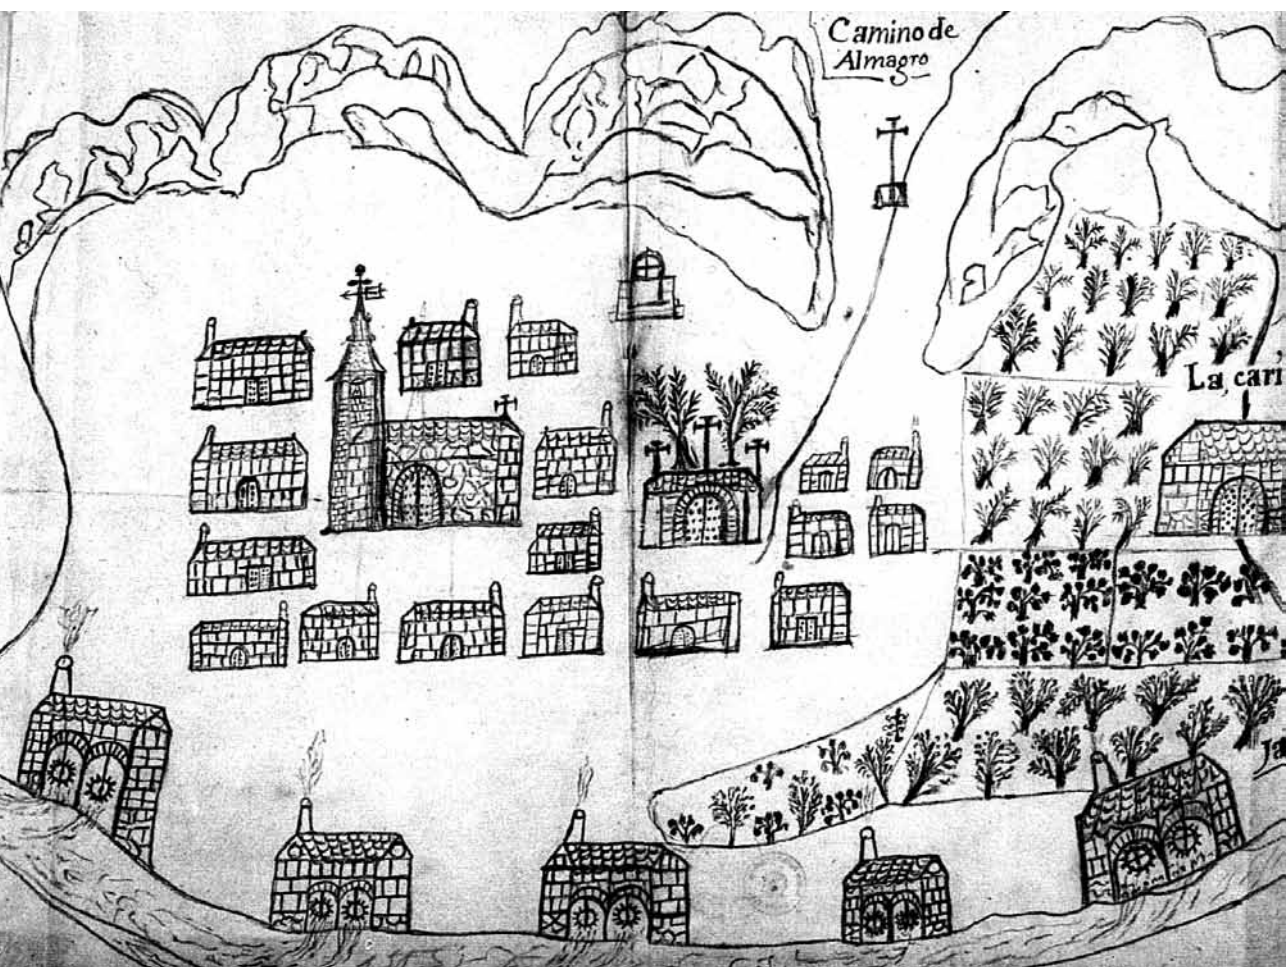 Camino de
Almagro
La cari
Ja